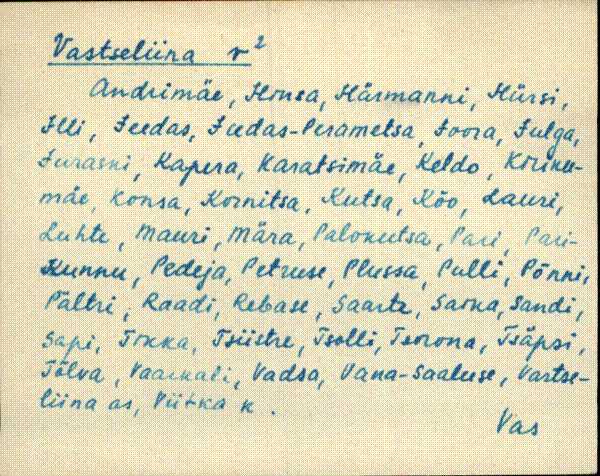 Vastseliina v²
Andrimäe, Hinsa, Härmanni, Hürsi,
Illi, Jeedas, Juudas-Perametsa, Joora, Julga,
Juraski, Kapera, Karatsimäe, Keldo, Kõrknu-
mäe, Konsa, Kornitsa, Kutsa, Kõo, Lauri,
Luhte, Mauri, Mära, Palokutsa, Pari, Pari-
Kunnu, Pedeja, Petruse, Plussa, Pulli, Põnni,
Pältri, Raadi, Rebase, Saarte, Sarka, Sandi,
Sapi, Tikka, Tsiistre, Tsolli, Tsorona, Tsäpsi,
Tõlva, Vaarkali, Vadsa, Vana-Saaluse, Vastse-
liina as, Viitka k.
Vas